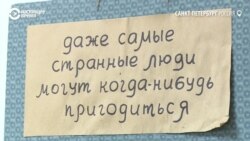 НАСТОЯЩЕЕ
ВРЕМЯ
САНКТ-ПЕТЕРБУРГ РОССИЯ
даже самые
странные люди
могут когда-нибудь
пригодиться